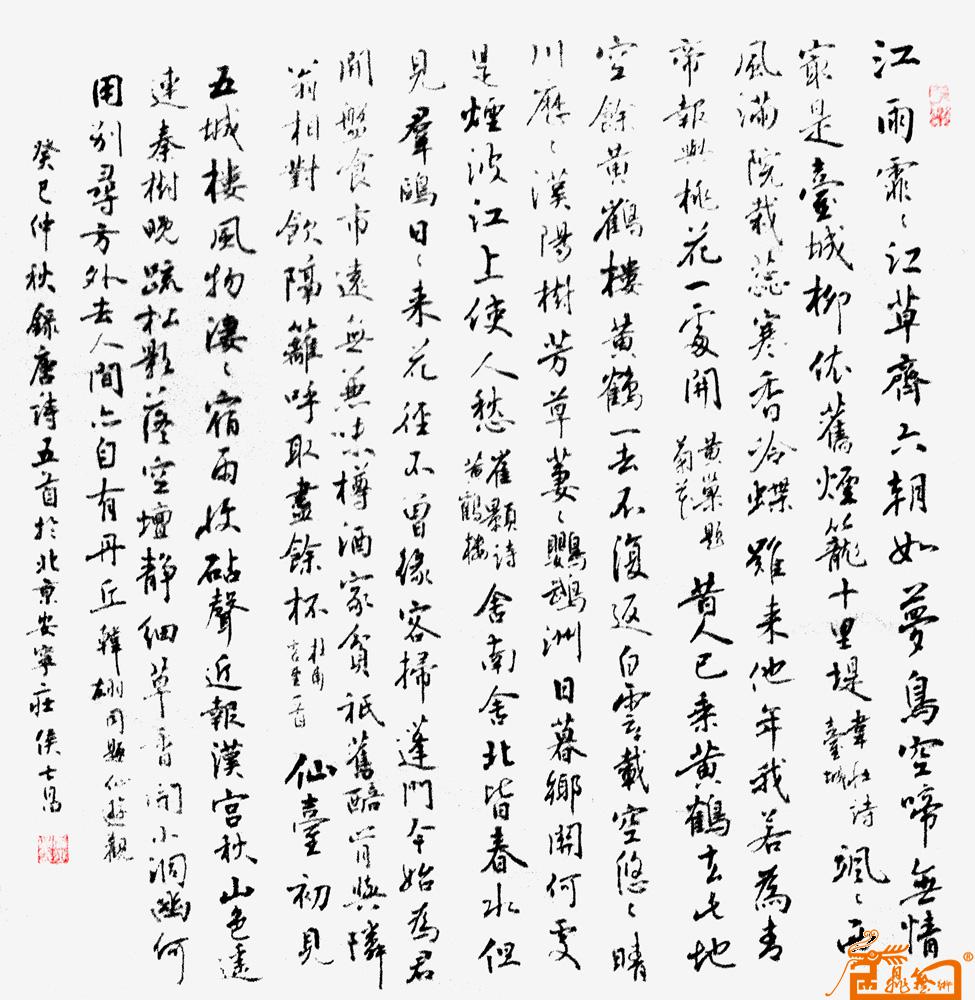 江雨霏〻江草齊六朝如夢鳥空啼無情
最是臺城柳依舊煙籠十里堤韋莊詩臺城颯〻西
風滿院栽蕊寒香冷蝶難来他年我若為青
帝報與桃花一處開黄巢題菊花昔人已乘黄鶴去此地
空餘黄鶴樓黄鶴一去不復返白雲千載空悠〻晴
川歷〻漢陽樹芳草萋〻鸚鵡洲日暮鄉關何處
是煙波江上使人愁崔顥詩黄鶴樓舍南舍北皆春水但
見羣鷗日〻来花徑不曾緣客掃蓬門今始為君
開盤飧市遠無兼味樽酒家貧祇舊醅肯與隣
翁相對飲隔籬呼取盡餘杯杜甫客至一首仙臺初見
五城樓風物淒〻宿雨收砧聲近報漢宫秋山色遥
連秦樹晚疏松影落空壇静細草香閒小洞幽何
用别尋方外去人間亦自有丹丘韓翃同題仙遊觀
癸巳仲秋錄唐詩五首於北京安寧莊侯士昌